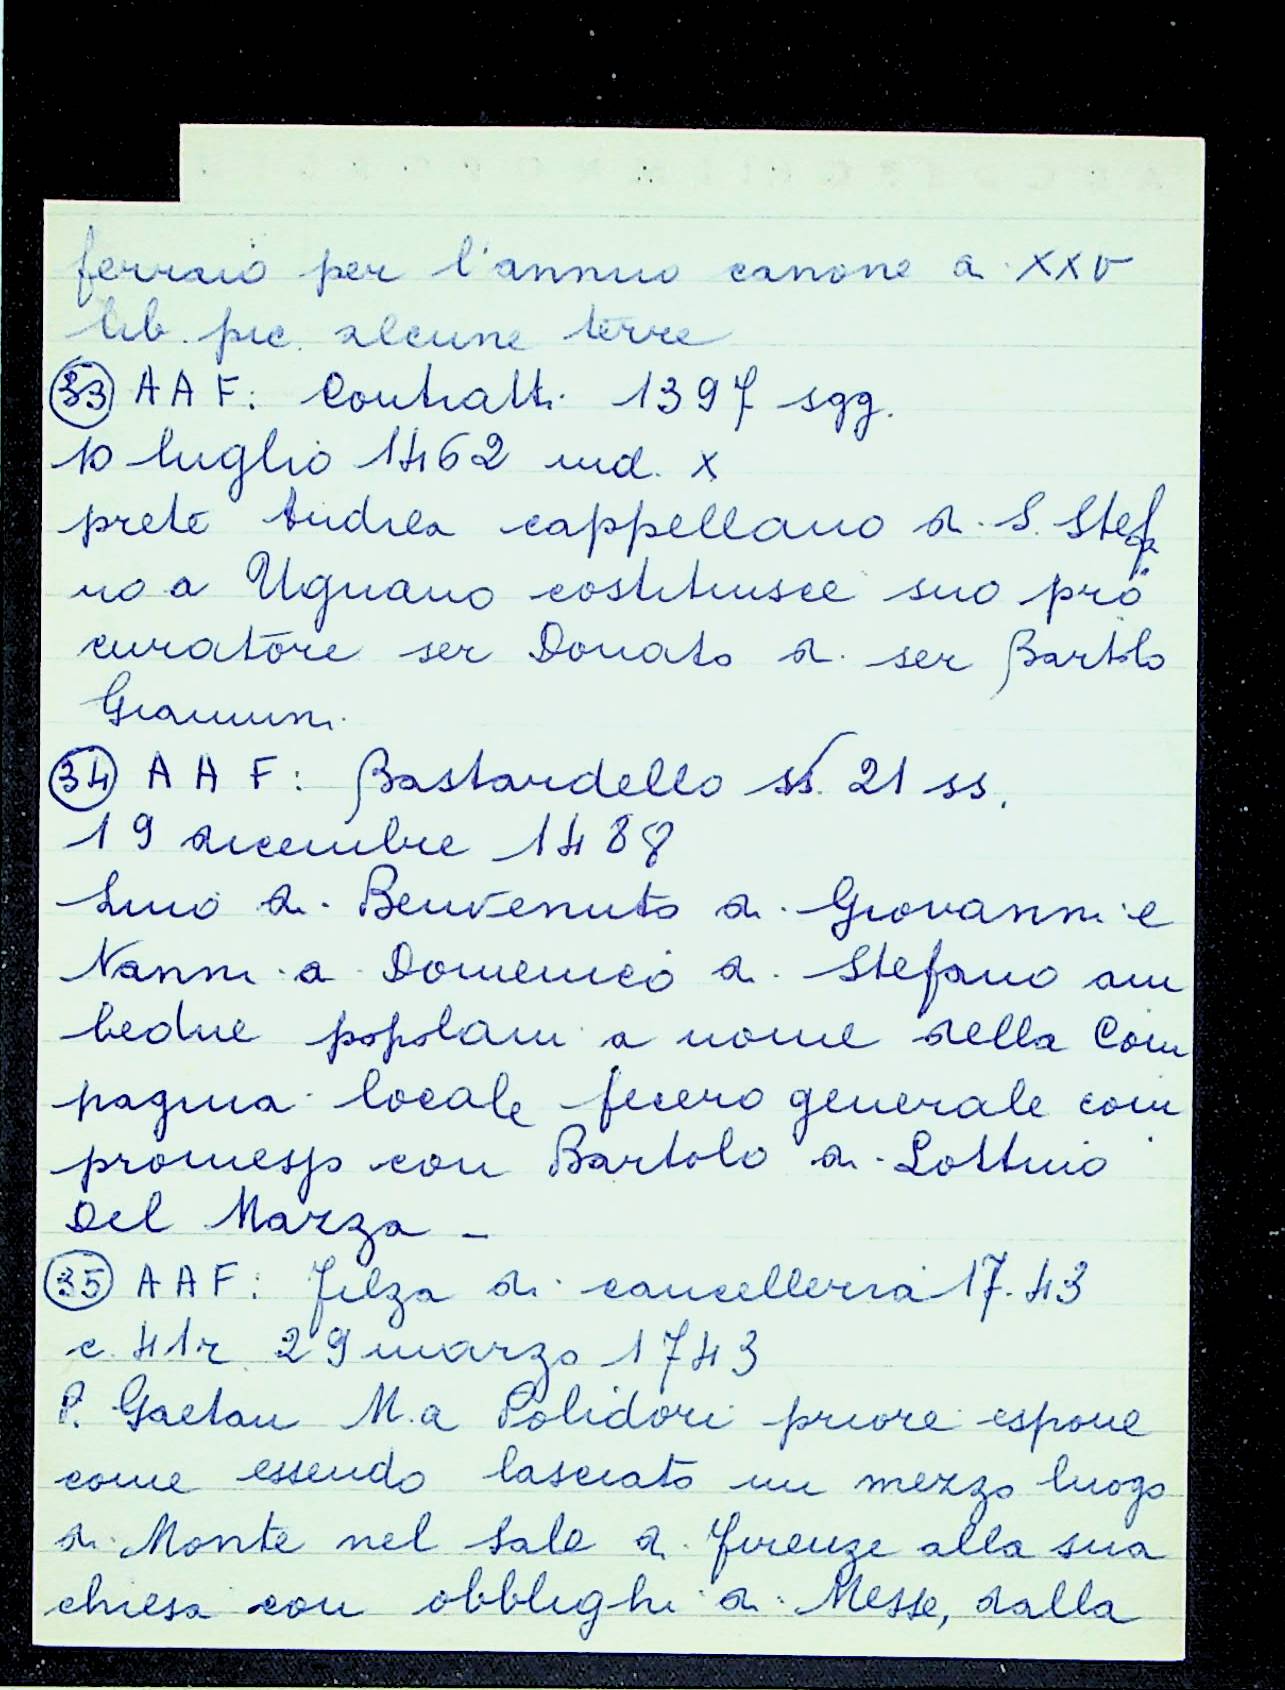 ferraio per l'annuo canone di XXV
lib. pic. alcune terre
33 AAF: Contratti 1397 sgg.
10 luglio 1462 ind. X
prete Andrea cappellano di S. Stefa
no a Ugnano costituisce suo pro
curatore ser Donato di ser Bartolo
Giannini
34 AAF: Bastardello ss. 21 ss.
19 dicembre 1488
Lino di Benvenuto di Giovanni e
Nanni di Domenico di Stefano am
bedue popolani a nome della Com
pagnia locale fecero generale com
promesso con Bartolo di Lottino
Del Mazza -
35 AAF: Filza di cancelleria 1743
c. 41r 29 marzo 1743
P. Gaetan M.a Polidori priore espone
come essendo lasciato un mezzo luogo
di Monte nel Sale di Firenze alla sua
chiesa con obblighi di Messe, dalla